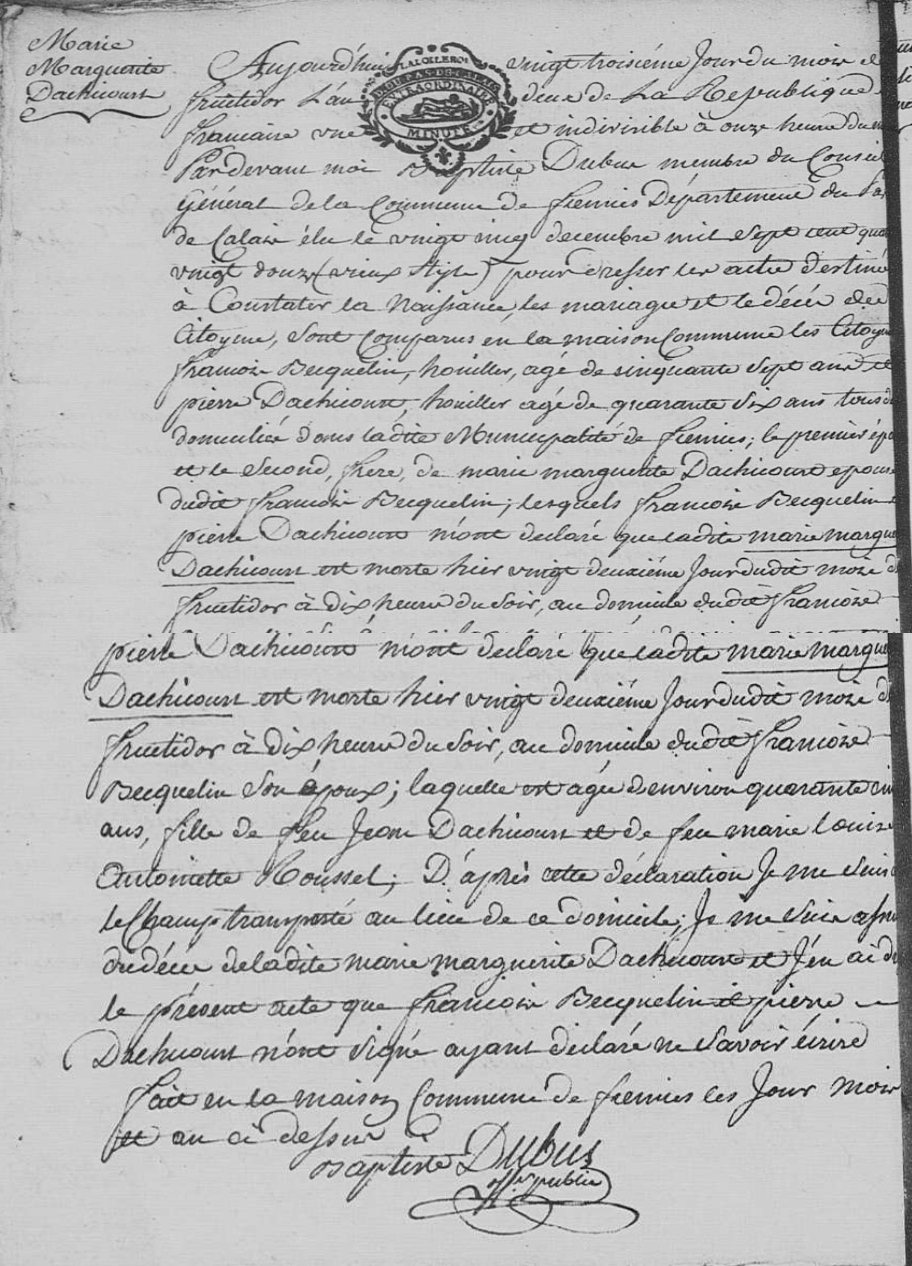 Marie
Marguerite
Dachicourt
Aujourd'hui vingt troisiéme Jour du mois de
fructidor L'an deux de La Republique
francaise une et indivisible à onze heure du
LA LOI LE ROI
DU PAS-DE-CALAIS
EXTRAORDINAIRE
MINUTE
Pardevant moi Baptiste Dubus membre du Conseil
Général de la Commune de fiennes Département du Pas
de Calais élu le vingt cinq decembre mil sept cent qua
vingt douze (vieux style) pour dresser les actes destinés
à Constater la Naissance, les mariages et le décès des
Citoyens, sont comparus en la maison Commune les Citoyens
francois Becquelin, houiller, agé de sinquante sept ans et
pierre Dachicourt, houiller agé de quarante six ans tous d
domiciliés dans ladite Municipalité de fiennes; le premier épou
et le second, frère, de marie marguerite Dachicourt epouse
dudit francois Becquelin; lesquels francois Becquelin
pierre Dachicourt m'ont declaré que ladite marie margue
Dachicourt est morte hier vingt deuxiéme Jour dudit mois d
fructidor à dix heure du soir, au domicile dudit francois
pierre Dachicourt m'ont declaré que ladite marie margue
Dachicourt est morte hier vingt deuxiéme Jour dudit mois d
fructidor à dix heure du soir, au domicile dudit francois
Becquelin son époux; laquelle est agée d'environ quarante cin
ans, fille de feu Jean Dachicourt et de feu marie louise
Antoinette Roussel; D'après cette déclaration Je me suis
le Champ transporté au lieu de ce domicile; Je me suis assu
du décès de ladite marie marguerite Dachicourt et J'en ai d
le présent acte que francois Becquelin et pierre
Dachicourt n'ont signé ayant déclaré ne savoir écrire
fait en la maison Commune de fiennes les Jour mois
et an ci dessus
Baptiste Dubus
off.er public